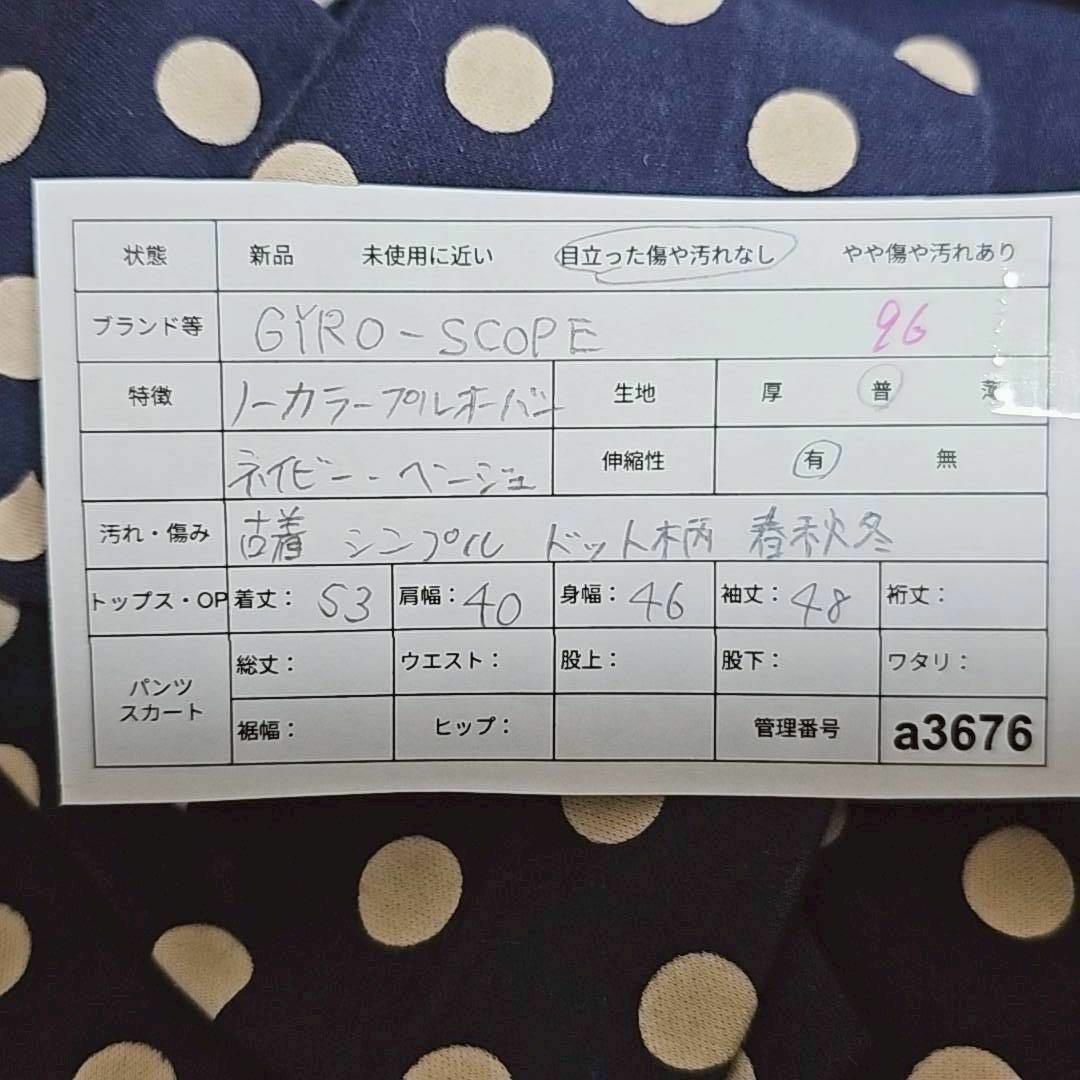 状態 新品 未使用に近い 目立った傷や汚れなし やや傷や汚れあり
ブランド等 GYRO-SCOPE 96
特徴 ノーカラープルオーバー 生地 厚 普 薄
ネイビー・ベージュ 伸縮性 有 無
汚れ・傷み 古着 シンプル ドット柄 春秋冬
トップス・OP 着丈: 53 肩幅: 40 身幅: 46 袖丈: 48 裄丈:
パンツ スカート
総丈: ウエスト: 股上: 股下: ワタリ:
裾幅: ヒップ: 管理番号 a3676